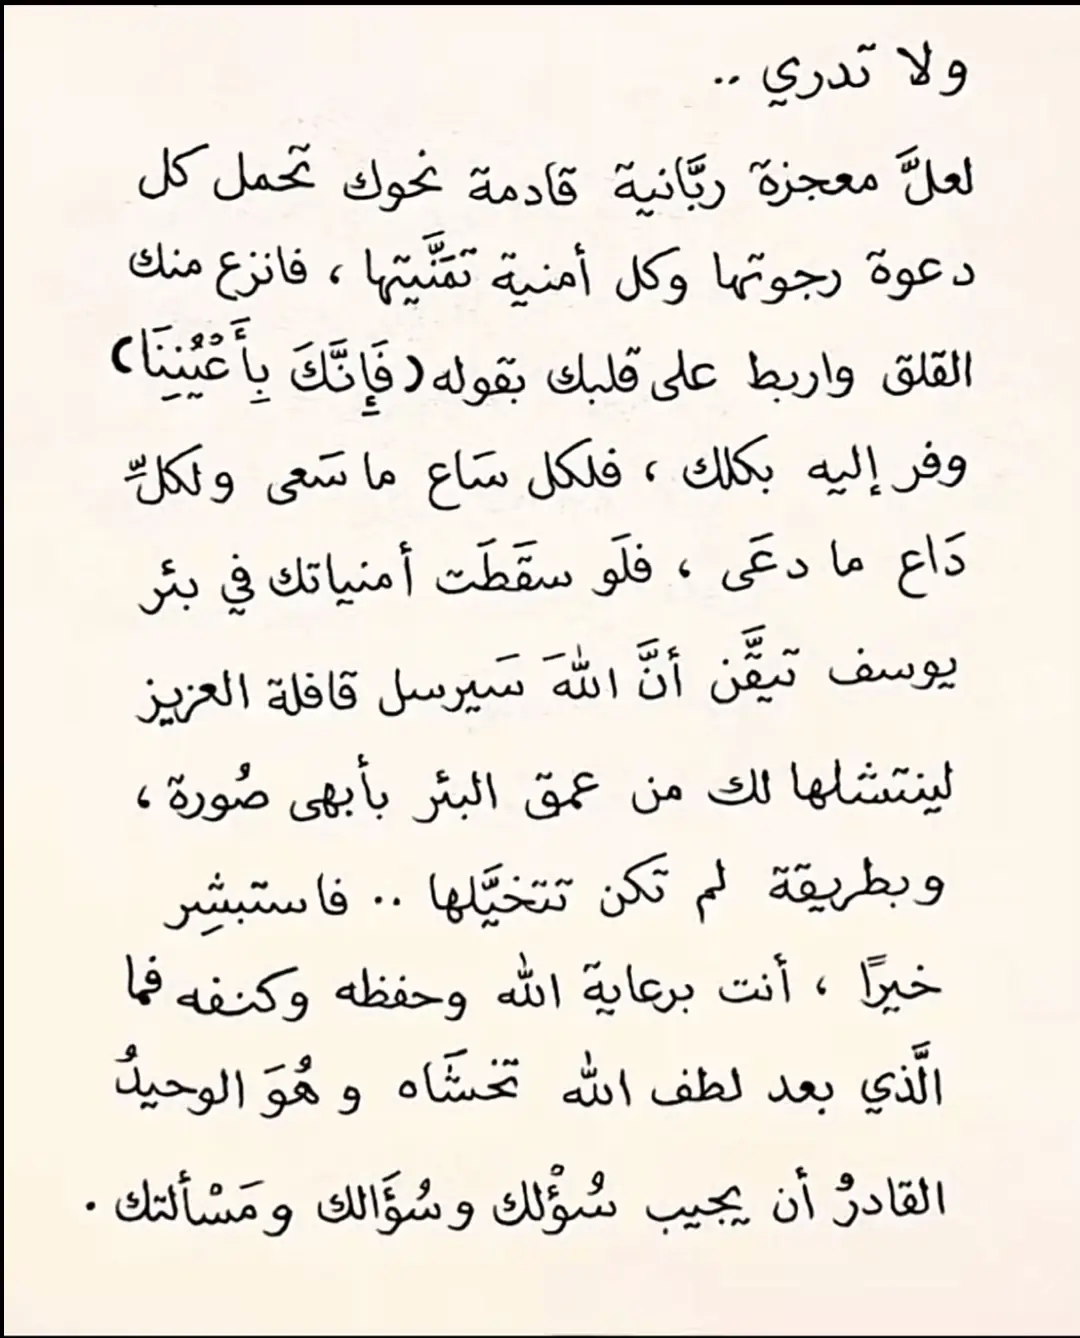 ولا تدري ..
لعلَّ معجزة ربَّانية قادمة نحوك تحمل كل
دعوة رجوتها وكل أمنية تمَنَّيتها ، فانزع منك
القلق واربط على قلبك بقوله (فَإِنَّكَ بِأَعْيُنِنَا)
وفر إليه بكلك ، فلكل سَاع ما سَعى ولكلِّ
دَاع ما دعَى ، فلَو سقَطَت أمنياتك في بئر
يوسف تيقَّن أنَّ اللهَ سَيرسل قافلة العزيز
لينتشلها لك من عمق البئر بأبهى صُورة ،
وبطريقة لم تكن تتخيَّلها .. فاستبشِر
خيرًا ، أنت برعاية الله وحفظه وكنفه فما
الَّذي بعد لطف الله تخشَاه و هُوَ الوحيدُ
القادرُ أن يجيب سُؤْلك وسُؤَالك ومَسْألتك .